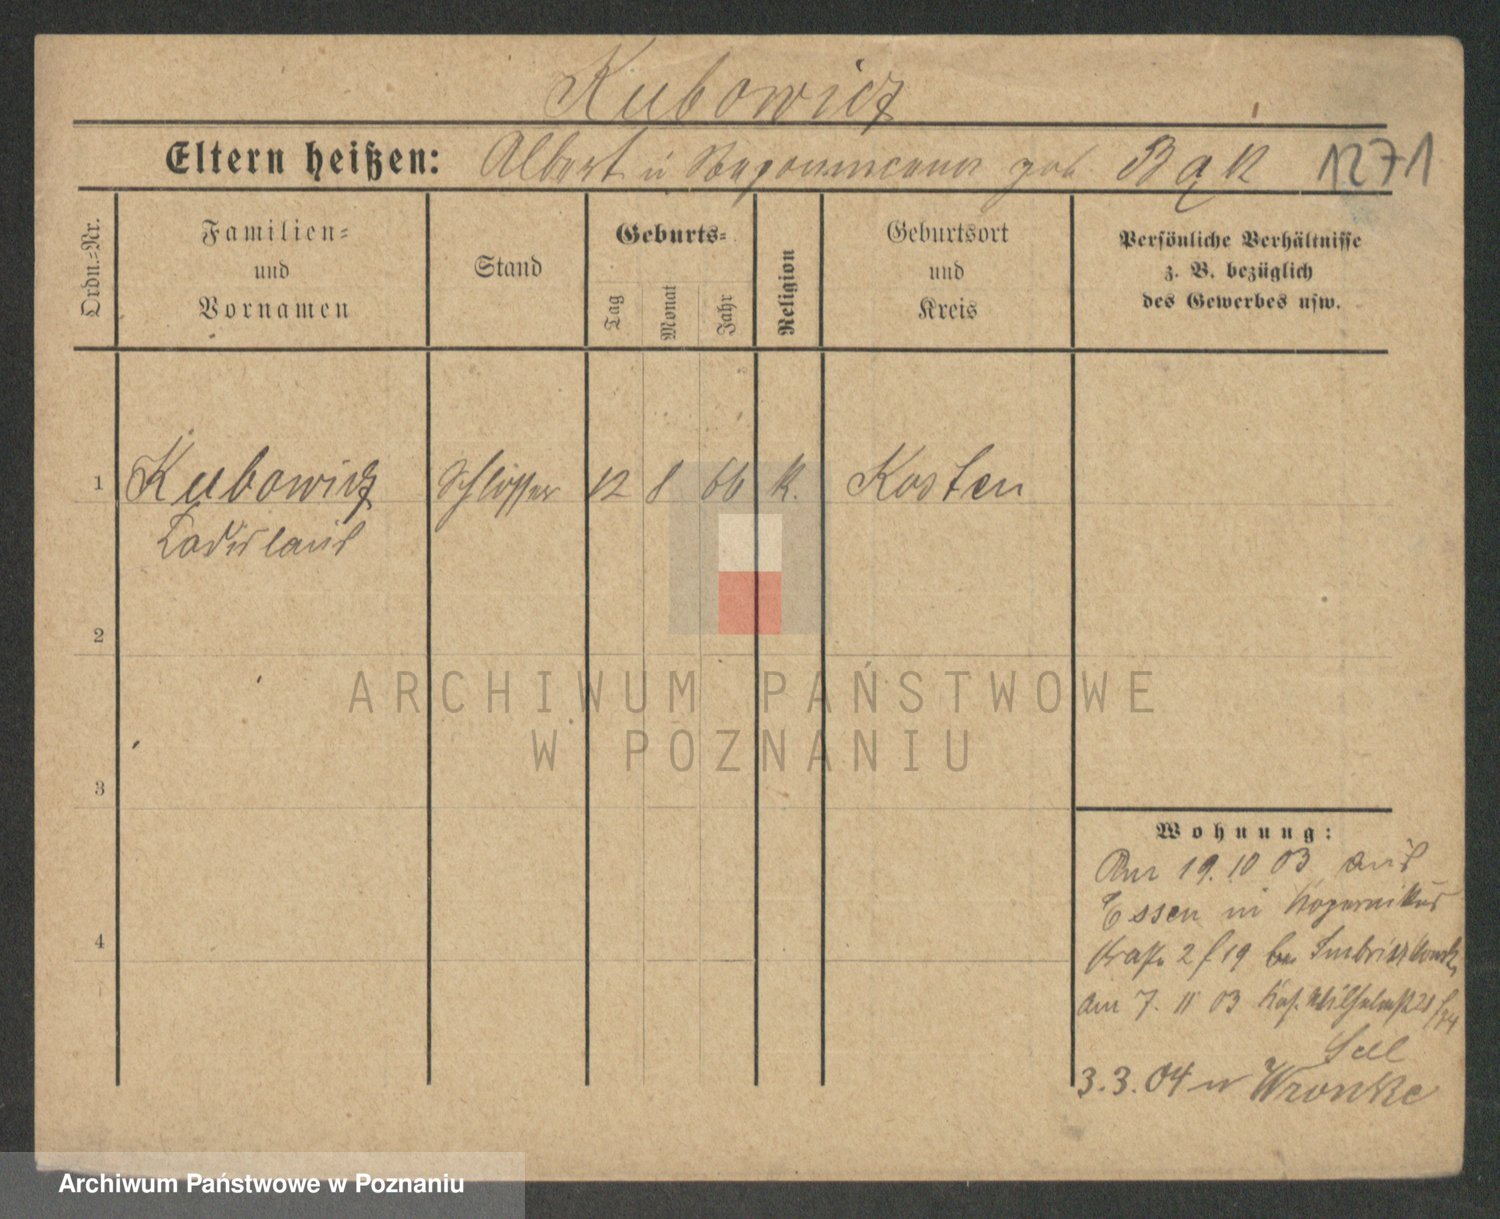 Kubowicz
Eltern heißen: Albert u geb Bąk 1271
Ordn.-Nr.
Familien-
und
Vornamen
Stand
Geburts-
Tag
Monat
Jahr
Religion
Geburtsort
und
Kreis
Persönliche Verhältnisse
z. B. bezüglich
des Gewerbes usw.
1 Kubowicz Schlosser 12 8 66 K. Kosten
Ladislaus
2
3
4
Wohnung:
Am 19.10 03 aus
Essen in Kopernikus
straße 2 f 19 bei
am 7. 11 03
3.3.04 n Wronke
ARCHIWUM PAŃSTWOWE
W POZNANIU
Archiwum Państwowe w Poznaniu